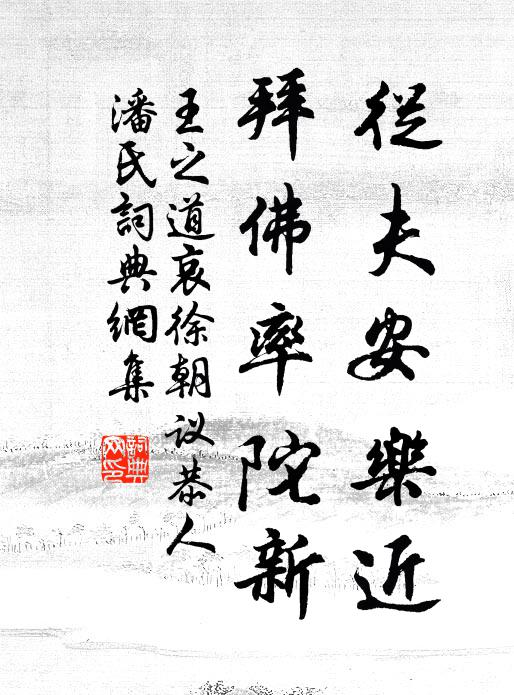 從夫安樂近
拜佛率陀新
王之道哀徐朝议恭人
潘氏詞典網集
詞典
网印